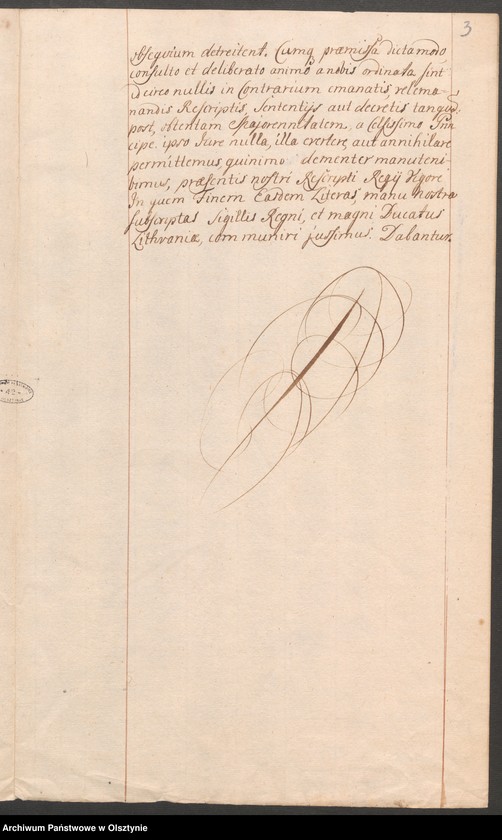 3
obsequium detreitent. Cumq præmissa dictamodo
consulto et deliberato animo a nobis ordinata sint
idcirco nullis in Contrarium emanatis, vel ema-
nandis Rescriptis, Sententijs aut decretis tanquã
post, obtentam Majorennitatem, a Celsissimo Prin
cipe ipso Jure nulla, illa evertere, aut annihilare
permittemus, quinimo clementer manuteni-
bimus, præsentis nostri Rescripti Regij Vigore
In quem Finem Easdem Literas, manu Nostra
subscriptas Sigillis Regni, et magni Ducatus
Lithvaniæ, com muniri jussimus. Dabantur.
Archiwum Państwowe w Olsztynie